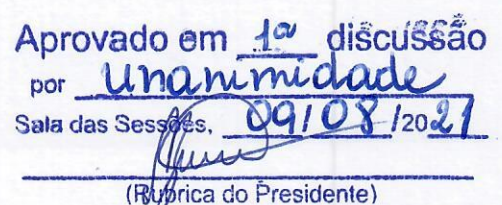 Aprovado em 1ª discussão
por Unanimidade
Sala das Sessões, 09/08/2021
(Rubrica do Presidente)